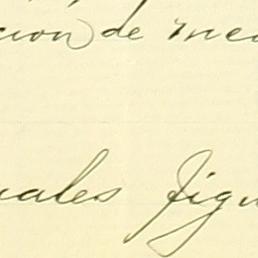 cion de med
uales figu